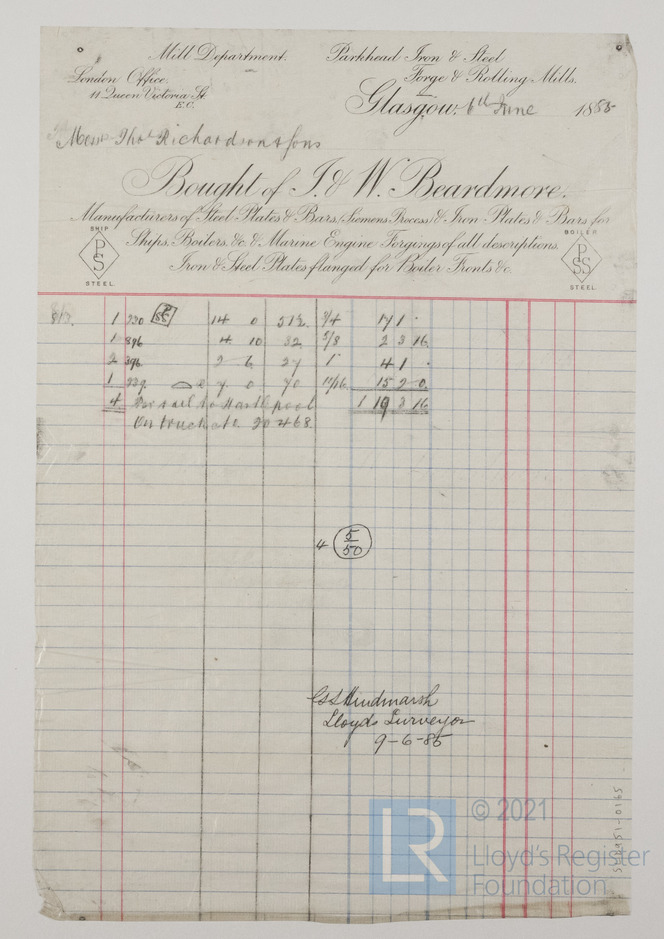 Mill Department.
Parkhead Iron & Steel
Forge & Rolling Mills.
London Office.
11 Queen Victoria St.
E.C.
Glasgow, 6th June 1885
Messrs Thos Richardson & Sons
Bought of I. & W. Beardmore.
Manufacturers of Steel Plates & Bars (Siemens Process) & Iron Plates & Bars for
Ships, Boilers, &c. & Marine Engine Forgings of all descriptions.
Iron & Steel Plates flanged for Boiler Fronts &c.
SHIP
PS
STEEL
BOILER
PSS
STEEL
1 230 14 0 51½ 3/4 17 1 "
1 4 10 32 5/8 2 3 16
2 396 2 6 27 1 4 1 "
1 229 7 0 70 15/16 15 2 0
4 Per rail to Hartlepool 1 19 3 16
On truck 20468
4 5/50
Hindmarsh
Lloyds Surveyor
9-6-85
LR
© 2021
Lloyd's Register
Foundation